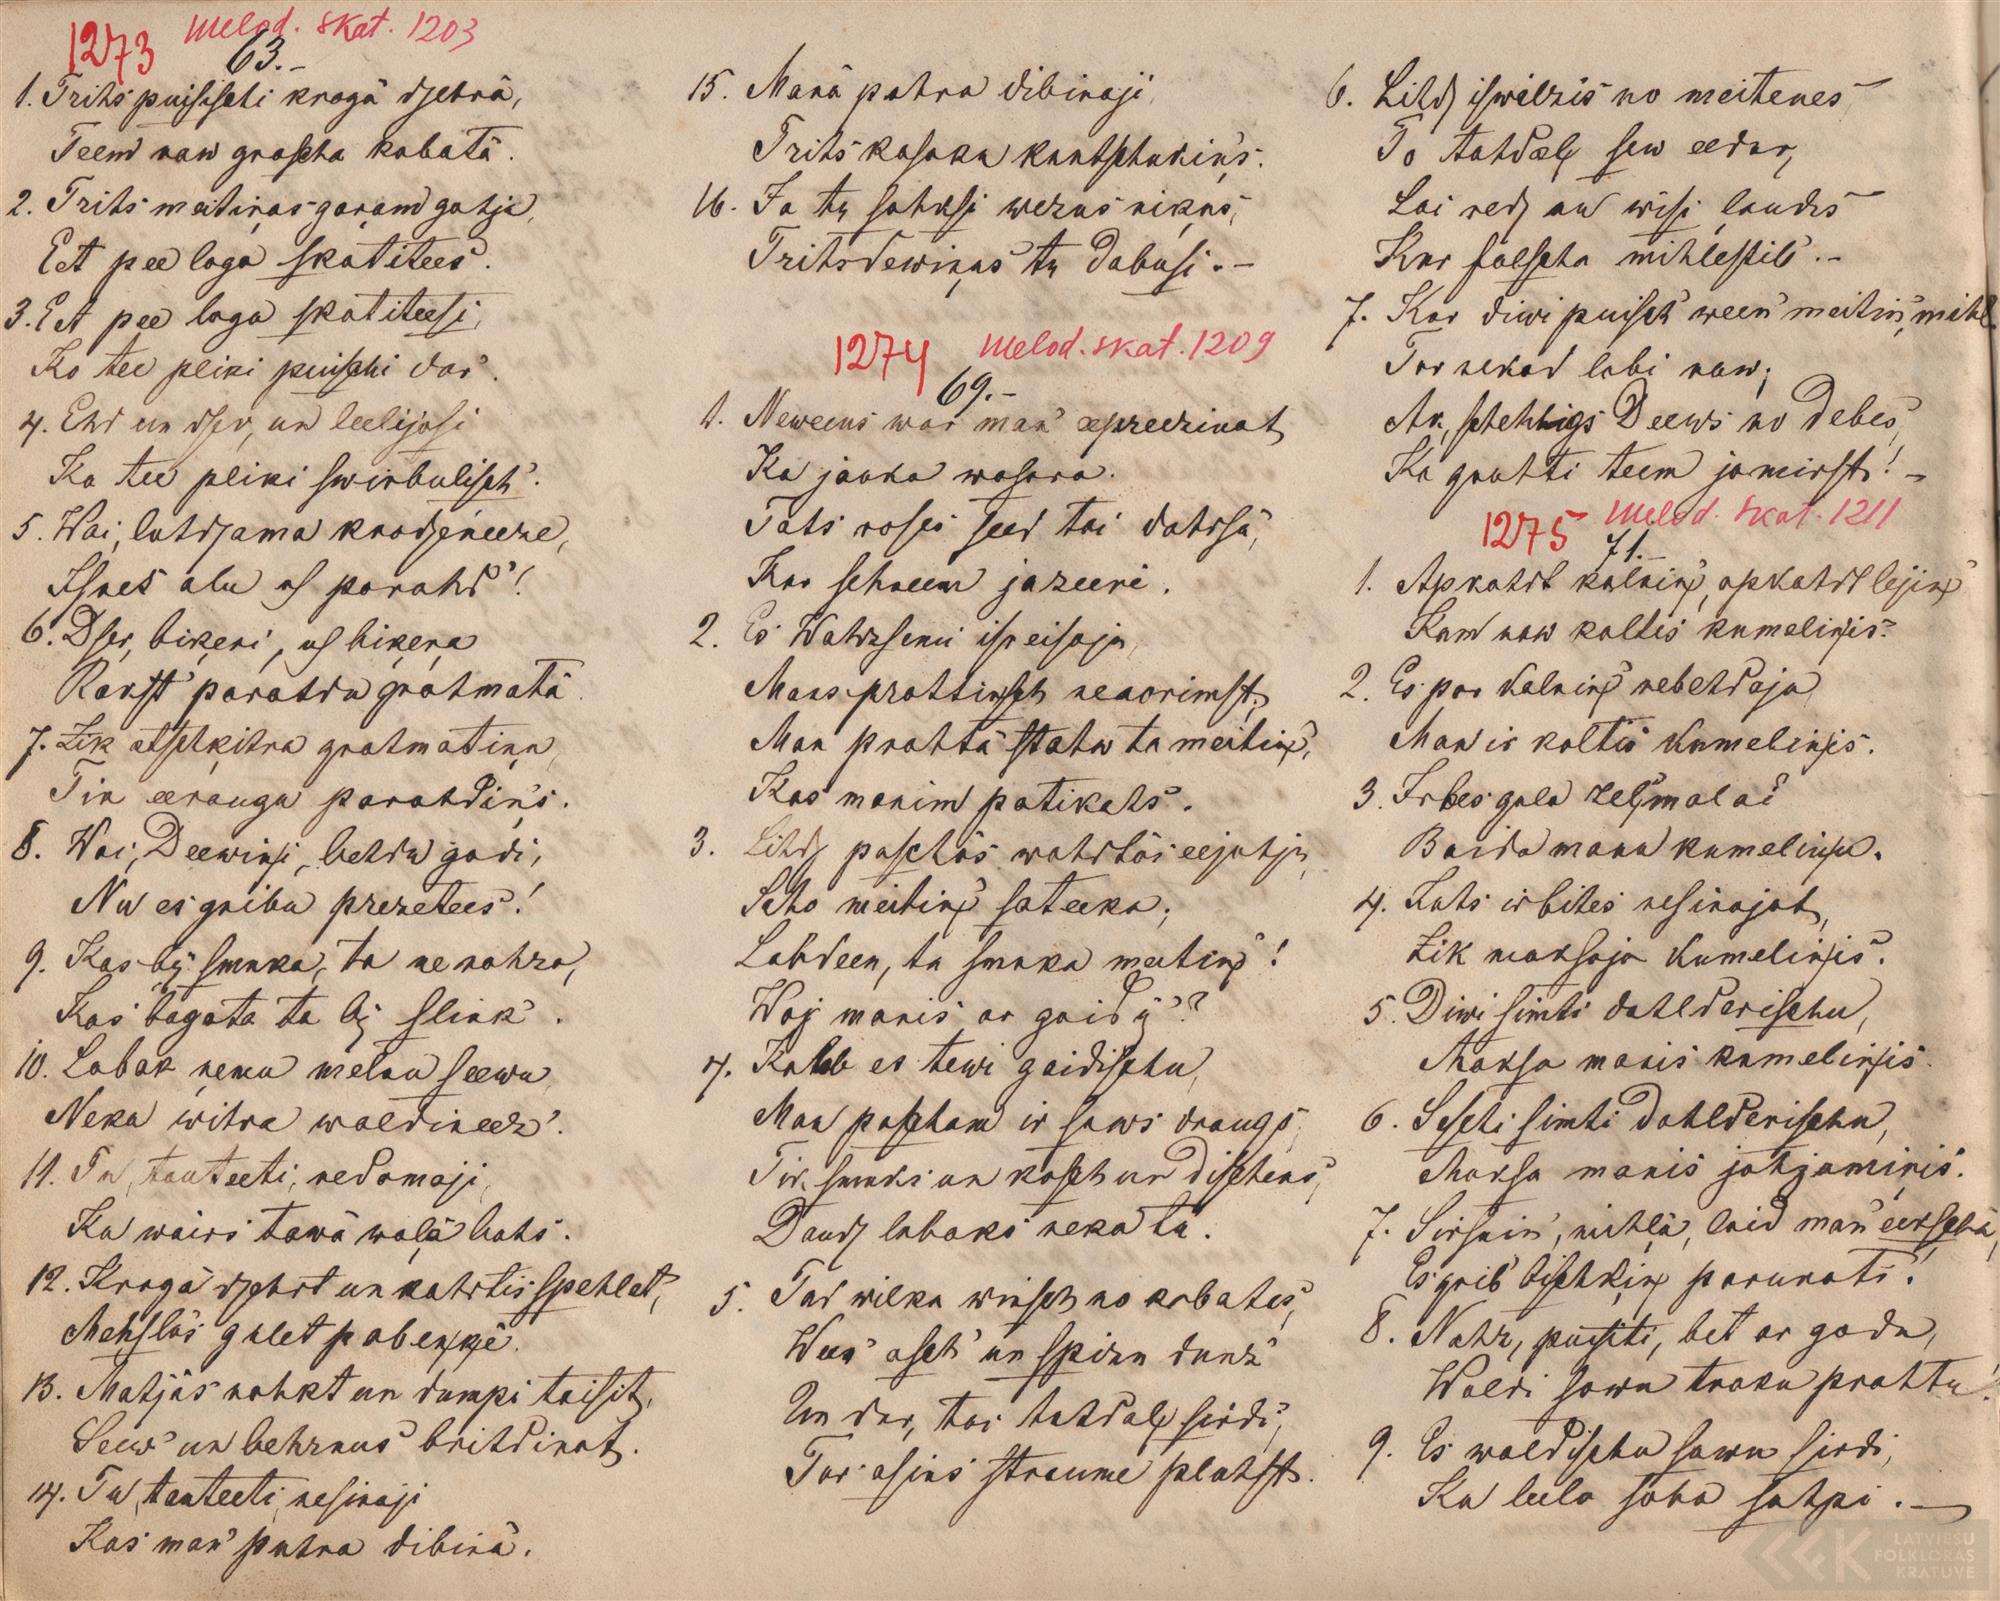 1273 Melod. skat. 1203
63.-
1. Trihs puisischi krogâ dsehrâ,
Teem naw grascha kabatâ.
2. Trihs meitiņas garam gahja,
Eet pee loga skatitees.
3. Eet pee loga skatiteesi,
Ko tee pliki puischi dar'.
4. Ehd un dser, un leelijasi
Ka tee pliki swirbulisch'.
5. Wai, luhdsama krodseneeze,
Isnes alu us parahd'!
6. Dser, biķeri, us biķera
Rakst' parahdu grahmatâ.
7. Zik atschķihra grahmatiņu,
Tik eerauga parahdiņ's.
8. Wai, Deewiņi, behdu gadi,
Nu es gribu prezetees!
9. Kas bij smuka, ta ne nahza,
Kas bagata ta bij slink'.
10. Labak ņemu melnu seewu,
Neka wihra waldineek'.
11. Tu, tauteeti, nedomaji,
Ka wairs tawâ waļâ buhs.
12. Krogâ dsehrt un kahrtis spehlet,
Mehslôs gulet pabeņķê.
13. Mahjâs nahkt un dumpi taisit,
Seew' un behrnus britdinat.
14. Tu, tauteeti, nesinaji
Kas man' puhra dibinâ.
15. Manâ puhra dibinaji
Trihs kasaku kantschukiņ's.
16. Ja tu sahksi wezus niķus,
Trihsdewiņas tu dabusi.-
1274 Melod. skat. 1209
69.-
1. Neweens war man' eepreezinat
Ka jauka wasara.
Tahs roses seed tai dahrsâ,
Kur schneem jazeeri.
2. Es Wahzsemi ispeisoju,
Mans prahtiņsch neaorimst;
Man prahtâ stahw ta meitiņ',
Kas manim patikahs.
3. Lihds paschâs wahrtôs eejahju,
Scho meitiņ' sateeku;
Labdeen, tu smuka meitiņ'!
Woj manis ar gaidij'?
4. Kalab es tewi gaidischu,
Man pascham ir saws draugs,
Tik smuks un kosch un dischens,
Daudz labaks neka tu.
5. Tad wilku winsch no kabates,
Ween' asch' un spizu dunz'
Un dur, tai tahdaļ sirdî,
Tur asins straume pluhst.
6. Lihds iswilzis no meitenes
To tahdaļ sew eedur,
Lai reds nu wisi laudis
Kur falscha mihlestib'.-
7. Kur diwi puisch' ween' meitiņ' mihl
Tur nekad labi naw;
Ak, schehligs Deews no debes,
Ka gruhti teem jamirst!-
1275 Melod. skat. 1211
71.-
1. Apkahrt kalniņ, apkahrt lejiņ
Kam naw koltis kumeliņis?
2. Es par kalniņ nebehdaju,
Man ir koltis kumeliņis.
3. Irbes gula zeļmalai
Baida manu kumeliņu.
4. Juhs irbites nesinajat,
Zik maksaja kumeliņis.
5. Diwi simti dahlderischu,
Maksa manis kumeliņis.
6. Seschi simti dahlderischu,
Maksa manis jahjumiņis.
7. Sirsniņ', mihļâ, laid man' eekschâ,
Es grib' bischķiņ parunats.
8. Nahz, puisiti, bet ar godu,
Waldi sawu traku prahtu!
9. Es waldischu sawu sirdi,
Ka leela soha sahpi.-
LATVIEŠU
FOLKLORAS
KRĀTUVE